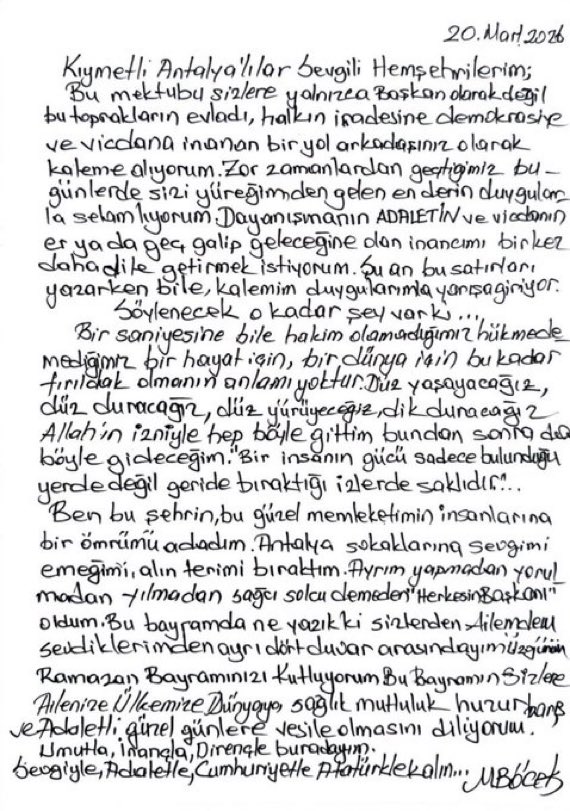 20.Mart.2026
Kıymetli Antalya'lılar Sevgili Hemşehrilerim;
Bu mektubu sizlere yalnızca Başkan olarak değil
bu toprakların evladı, halkın iradesine demokrasiye
ve vicdana inanan bir yol arkadaşınız olarak
kaleme alıyorum. Zor zamanlardan geçtiğimiz bu-
günlerde sizi yüreğimden gelen en derin duygular
la selamlıyorum. Dayanışmanın ADALETİN ve vicdanın
er ya da geç galip geleceğine olan inancımı bir kez
daha dile getirmek istiyorum. Şu an bu satırları
yazarken bile, kalemim duygularımla yarışa giriyor.
Söylenecek o kadar şey var ki...
Bir saniyesine bile hakim olamadığımız hükmede
mediğimiz bir hayat için, bir dünya için bu kadar
fırıldak olmanın anlamı yoktur. Düz yaşayacağız,
düz duracağız, düz yürüyeceğiz, dik duracağız
Allah'ın izniyle hep böyle gittim bundan sonra da
böyle gideceğim. "Bir insanın gücü sadece bulunduğu
yerde değil geride bıraktığı izlerde saklıdır"...
Ben bu şehrin, bu güzel memleketimin insanlarına
bir ömrümü adadım. Antalya sokaklarına sevgimi
emeğimi, alın terimi bıraktım. Ayrım yapmadan yorul
madan yılmadan sağcı solcu demeden "Herkesin Başkanı"
oldum. Bu bayramda ne yazık ki sizlerden Ailemden
sevdiklerimden ayrı dört duvar arasındayım Üzgünüm
Ramazan Bayramınızı Kutluyorum Bu Bayramın Sizlere
Ailenize Ülkemize Dünyaya sağlık mutluluk huzur barış
ve Adaletli güzel günlere vesile olmasını diliyorum.
Umutla, İnançla, Dirençle buradayım.
Sevgiyle, Adaletle, Cumhuriyetle Atatürkle kalın... MBöcek